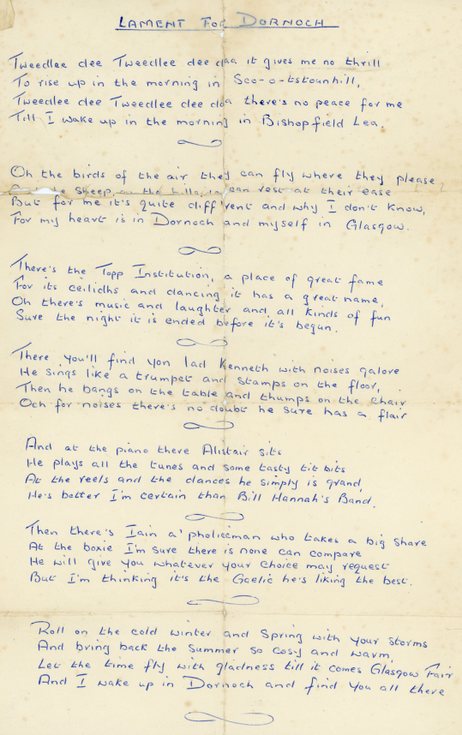 LAMENT FOR DORNOCH
Tweedlee dee Tweedlee dee daa it gives me no thrill
To rise up in the morning in Sco-o-tstounhill,
Tweedlee dee Tweedlee dee daa there's no peace for me
Till I wake up in the morning in Bishopfield Lea.
Oh the birds of the air they can fly where they please
the sheep on the hills, can rest at their ease
But for me it's quite diff'rent and why I don't know,
For my heart is in Dornoch and myself in Glasgow.
There's the Topp Institution, a place of great fame
For its ceilidhs and dancing it has a great name,
Oh there's music and laughter and all kinds of fun
Sure the night it is ended before it's begun.
There you'll find yon lad Kenneth with noises galore
He sings like a trumpet and stamps on the floor,
Then he bangs on the table and thumps on the chair
Och for noises there's no doubt he sure has a flair
And at the piano there Alistair sits
He plays all the tunes and some tasty tit bits
At the reels and the dances he simply is grand,
He's better I'm certain than Bill Hannah's Band.
Then there's Iain a' pholiceman who takes a big share
At the boxie I'm sure there is none can compare
He will give you whatever your choice may request
But I'm thinking it's the Gaelic he's liking the best.
Roll on the cold winter and Spring with your storms
And bring back the summer so cosy and warm,
Let the time fly with gladness till it comes Glasgow Fair
And I wake up in Dornoch and find you all there